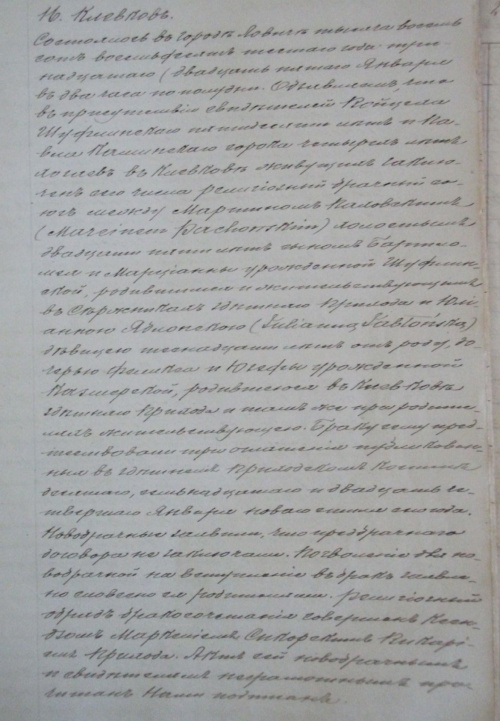 16. Клевковъ.
Состоялось въ городѣ Ловичѣ тысяча восемь
сотъ восемьдесятъ шестаго года три-
надцатаго (двадцать пятаго Января
въ два часа по полудни. Объявляемъ, что
въ присутствіи свидѣтелей Войцеха
Шуфлинскаго пятидесяти лѣтъ и Па-
вла Калинскаго сорока четырехъ лѣтъ
въ Клевковѣ живущихъ заклю-
ченъ сего числа религіозный брачный со-
юзъ между Мартиномъ
(Marcinem холостымъ
двадцати пяти лѣтъ сыномъ Бартло-
мея и Марціанны урожденной Шуфлин-
ской, родившимся и жительствующимъ
въ здѣшняго Прихода и Юлі-
анною Яблонскою (Julianną Jabłońską)
дѣвицею шестнадцати лѣтъ отъ роду, до-
черью Феликса и Юзефы урожденной
Казморской, родившеюся въ Клевковѣ
здѣшняго Прихода и тамъ же при родите-
ляхъ жительствующею. Браку сему пред-
шествовали три оглашенія публикован-
ныя въ здѣшнемъ Приходскомъ Костелѣ
десятаго, семьнадцатаго и двадцать че-
твертаго Января новаго стиля сего года.
Новобрачные заявили, что предбрачнаго
договора не заключали. Позволеніе для но-
вобрачной на вступленіе въ бракъ заявле-
но словесно ея родителями. Религіозный
обрядъ бракосочетанія совершенъ Ксен-
дзомъ Сикорскимъ Викарі-
емъ Прихода. Актъ сей новобрачнымъ
и свидѣтелямъ неграмотнымъ про-
читанъ Нами подписанъ.